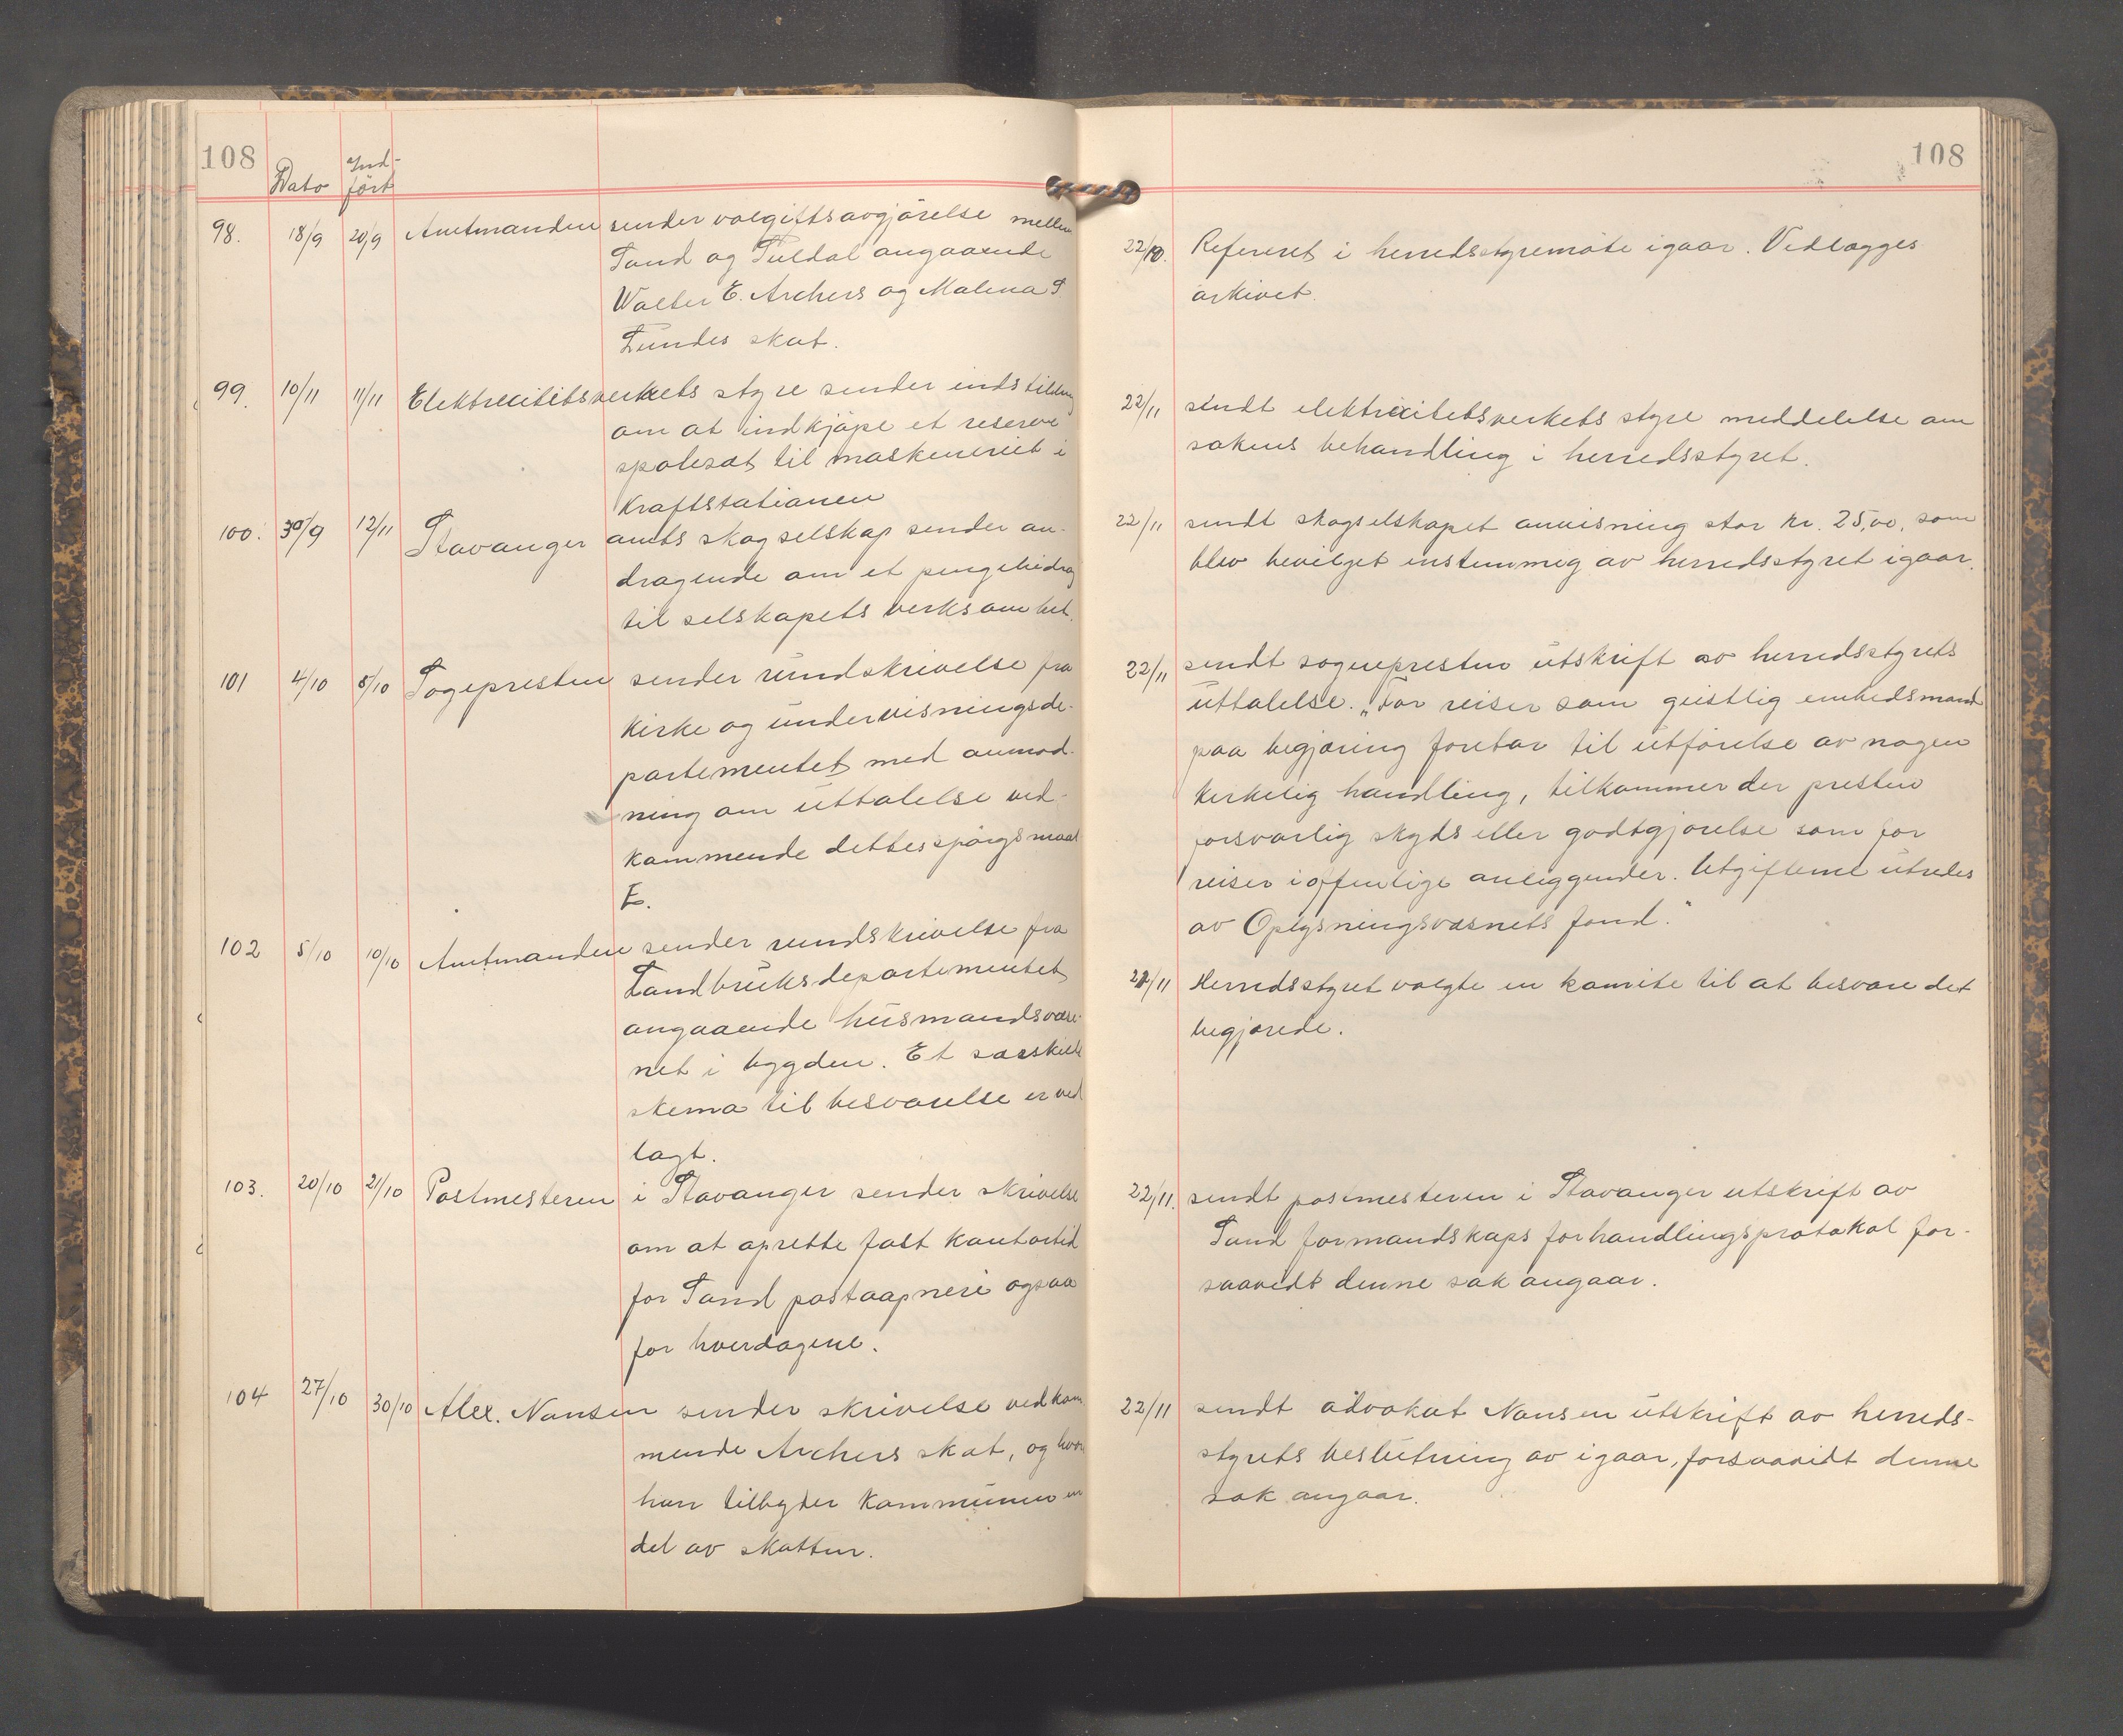 108
Dato
Ind-
ført
98. 18/9 20/9 Amtmanden sender voldgiftsavgjörelse mellem
Sand og Suldal angaaende
Walter E. Archers og Malena S
Lundes skat.
99. 10/11 11/11 Elektricitetsverkets styre sender indstilling
om at indkjöpe et reserve
spolesæt til maskineriet i
Kraftstationen
100. 30/9 12/11 Stavanger amts skogselskap sender an-
dragende om et pengebidrag
til selskapets verksomhet.
101 4/10 5/10 Sogepresten sender rundskrivelse fra
Kirke og undervisningsde-
partementet med anmod-
ning om uttalelse ved-
kommende dettes spörgsmaal
E.
102 5/10 10/10 Amtmanden sender rundskrivelse fra
Landbruksdepartementet
angaaende husmandsvæse-
net i bygden. Et særskilt
skema til besvarelse er ved
lagt.
103. 20/10 21/10 Postmesteren i Stavanger sender skrivelse
om at oprette fast kontortid
for Sand postaapneri ogsaa
for hverdagene.
104 27/10 30/10 Alex. Nansen sender skrivelse vedkom
mende Archers skat, og hvor
han tilbyder Kommunen en
del av skatten.
108
22/10. Refereret i herredsstyremöte igaar. Vedlægges
arkivet.
22/11 sendt elektricitetsverkets styre meddelelse om
sakens behandling i herredsstyret.
22/11 sendt skogselskapet anvisning stor kr. 25,00, som
blev bevilget enstemmig av herredsstyret igaar.
22/11 sendt sognepresten utskrift av herredsstyrets
uttalelse. „For reiser som geistlig embedsmand
paa begjæring foretar til utförelse av nogen
kirkelig handling, tilkommer der presten
forsvarlig skyds eller godtgjörelse som for
reiser i offentlige anliggender. Utgifterne utredes
av Oplysningsvæsnets fond."
22/11 Herredsstyret valgte en komite til at besvare det
begjærede.
22/11. sendt postmesteren i Stavanger utskrift av
Sand formandskaps forhandlingsprotokol for-
saavidt denne sak angaar.
22/11 sendt advokat Nansen utskrift av herreds-
styrets beslutning av igaar, forsaavidt denne
sak angaar.